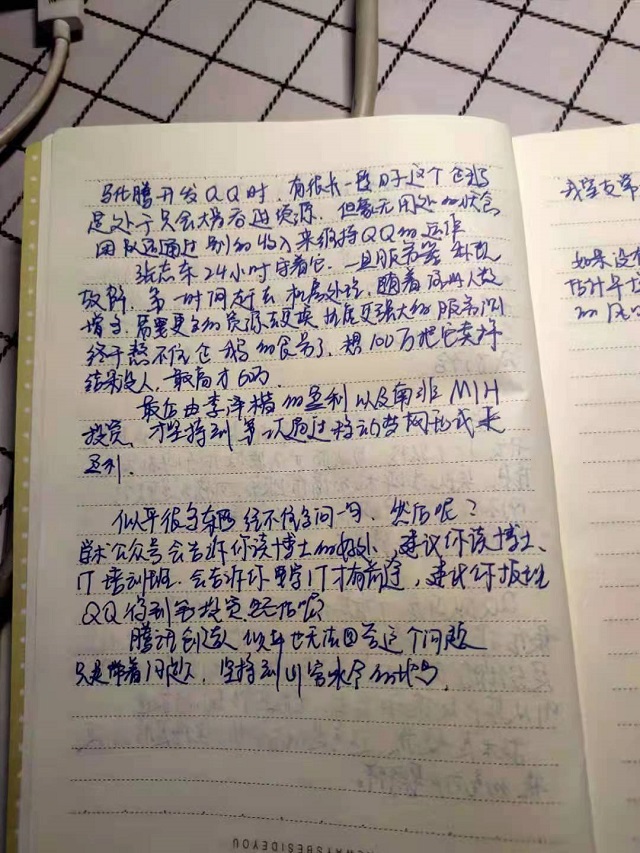 马化腾开发QQ时，有很长一段日子这个企鹅
是处于只会大量吞进资源，但毫无用处的状态
团队还通过别的收入来维持QQ的运作
张志东24小时守着它，一旦服务器
故障，第一时间赶去机房处理，随着用户人数
增多，需要更多的资源去更换更强大的服务
终于熬不住企鹅的食量了，想100万把它卖掉
结果没人，最高才60万
最后由李泽楷的盈利以及南非MIH
投资，才坚持到第一次通过移动梦网形式来
盈利．
似乎很多东西经不住多问一句，然后呢？
学术公众号会告诉你读博士的好处，建议你读博士、
IT培训班，会告诉你要学IT才有前途，建议你报班
QQ得到笔投资，然后呢
腾讯创始人似乎也无法回答这个问题
只是带着问题，坚持到
我
如果没有
估计
的
WAYSBESIDEYOU